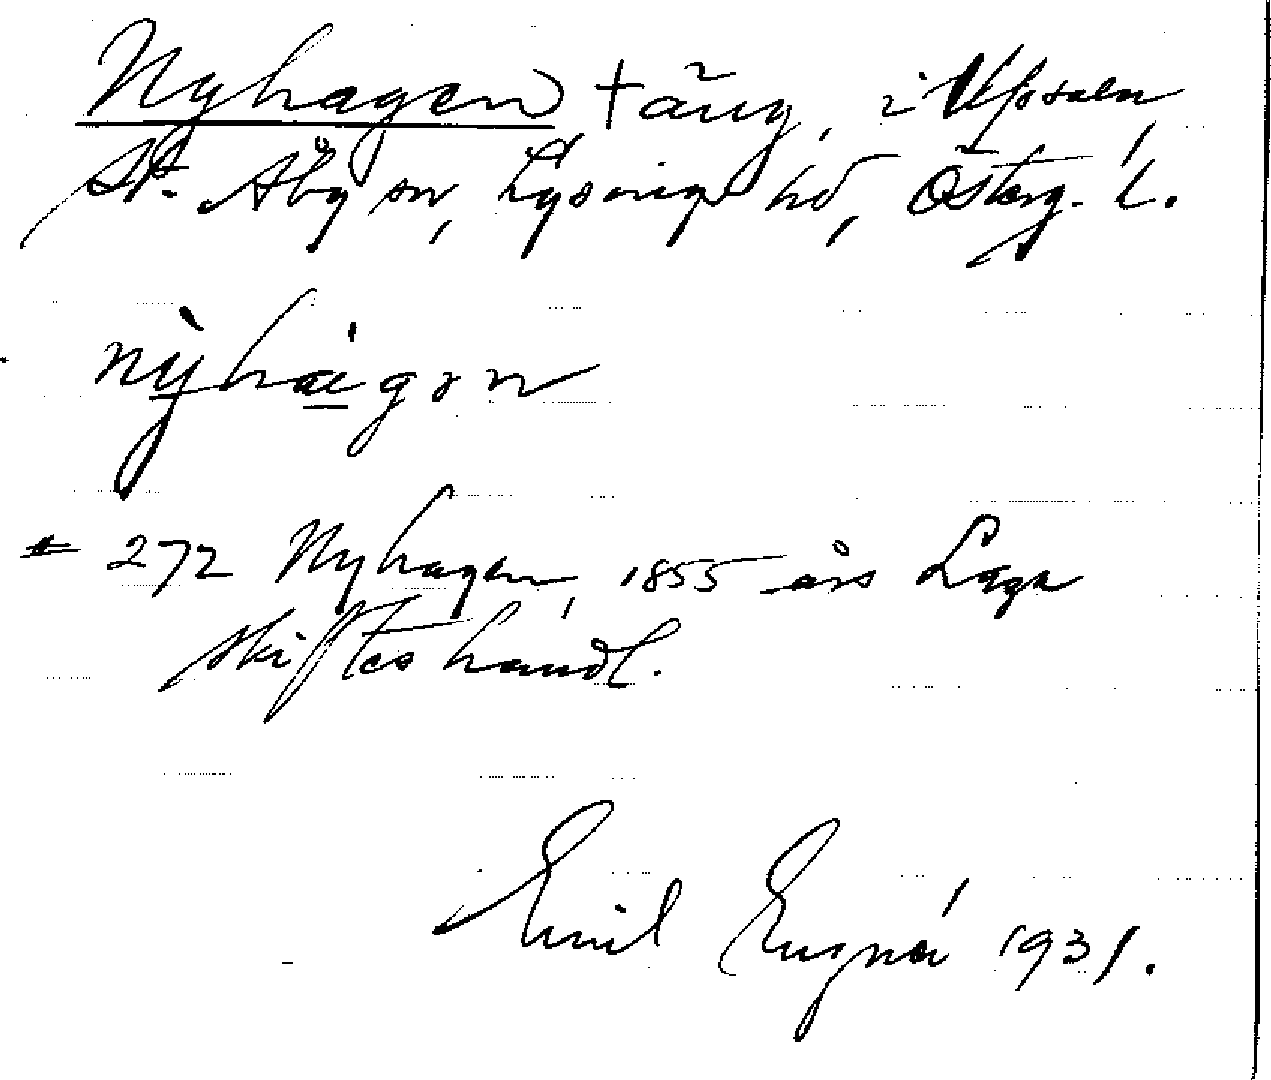 Nyhagen, † äng, i Uppsalen
St. Åby sn, Lysings hd, Österg. l.
nỳhàgən
# 272 Nyhagen, 1855 års Laga
skifteshandl.
Emil Engnér 1931.